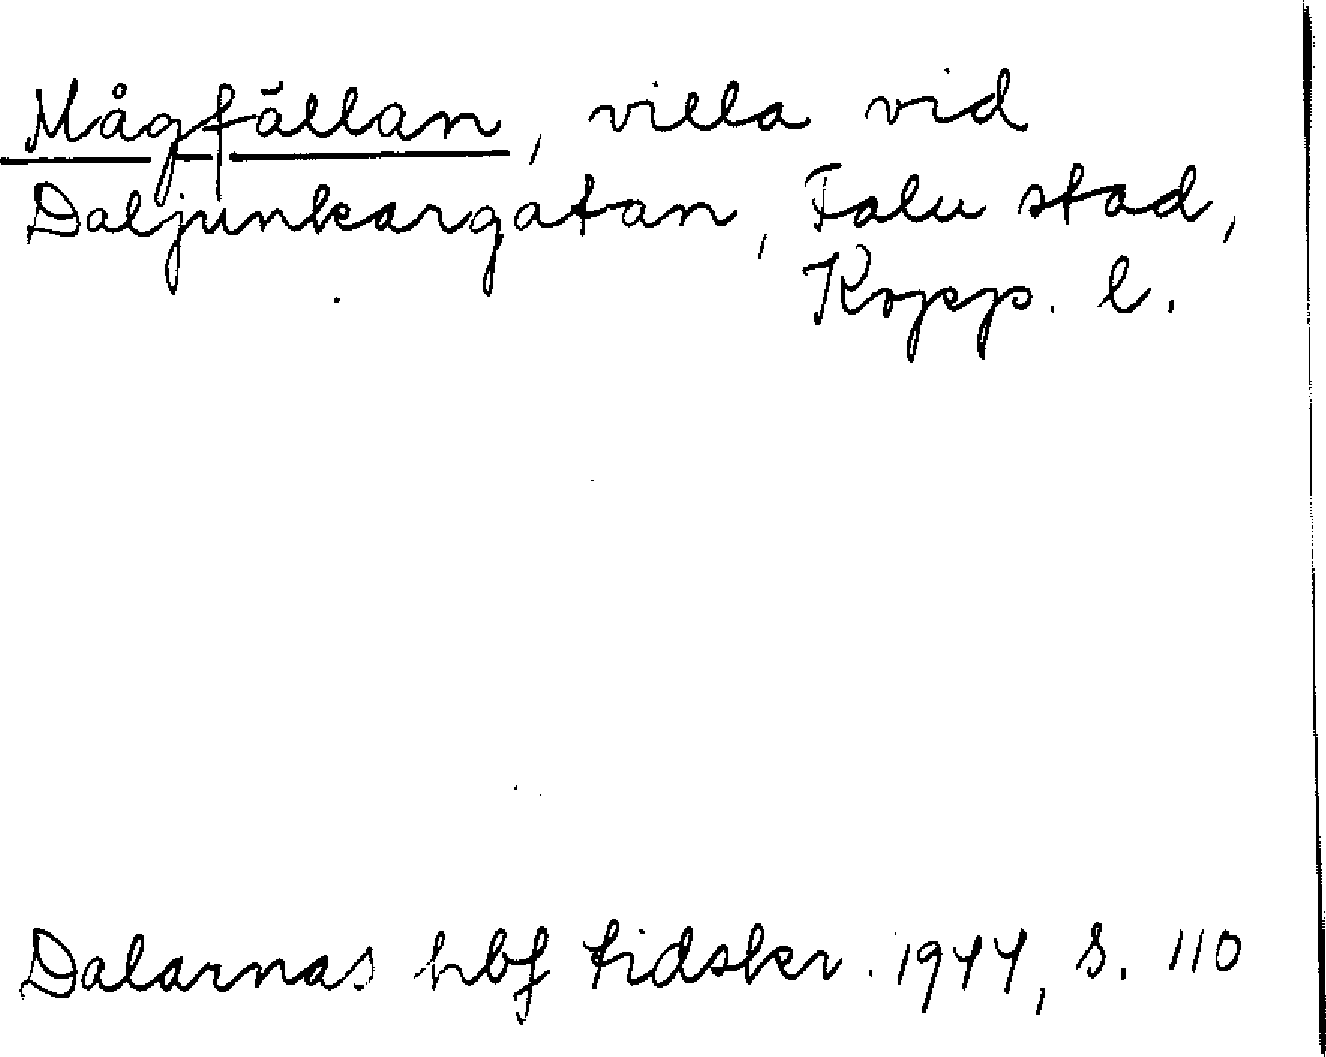 Mågfällan, villa vid
Daljunkargatan, Falu stad,
Kopp. l.
Dalarnas hbf tidskr. 1944, s. 110